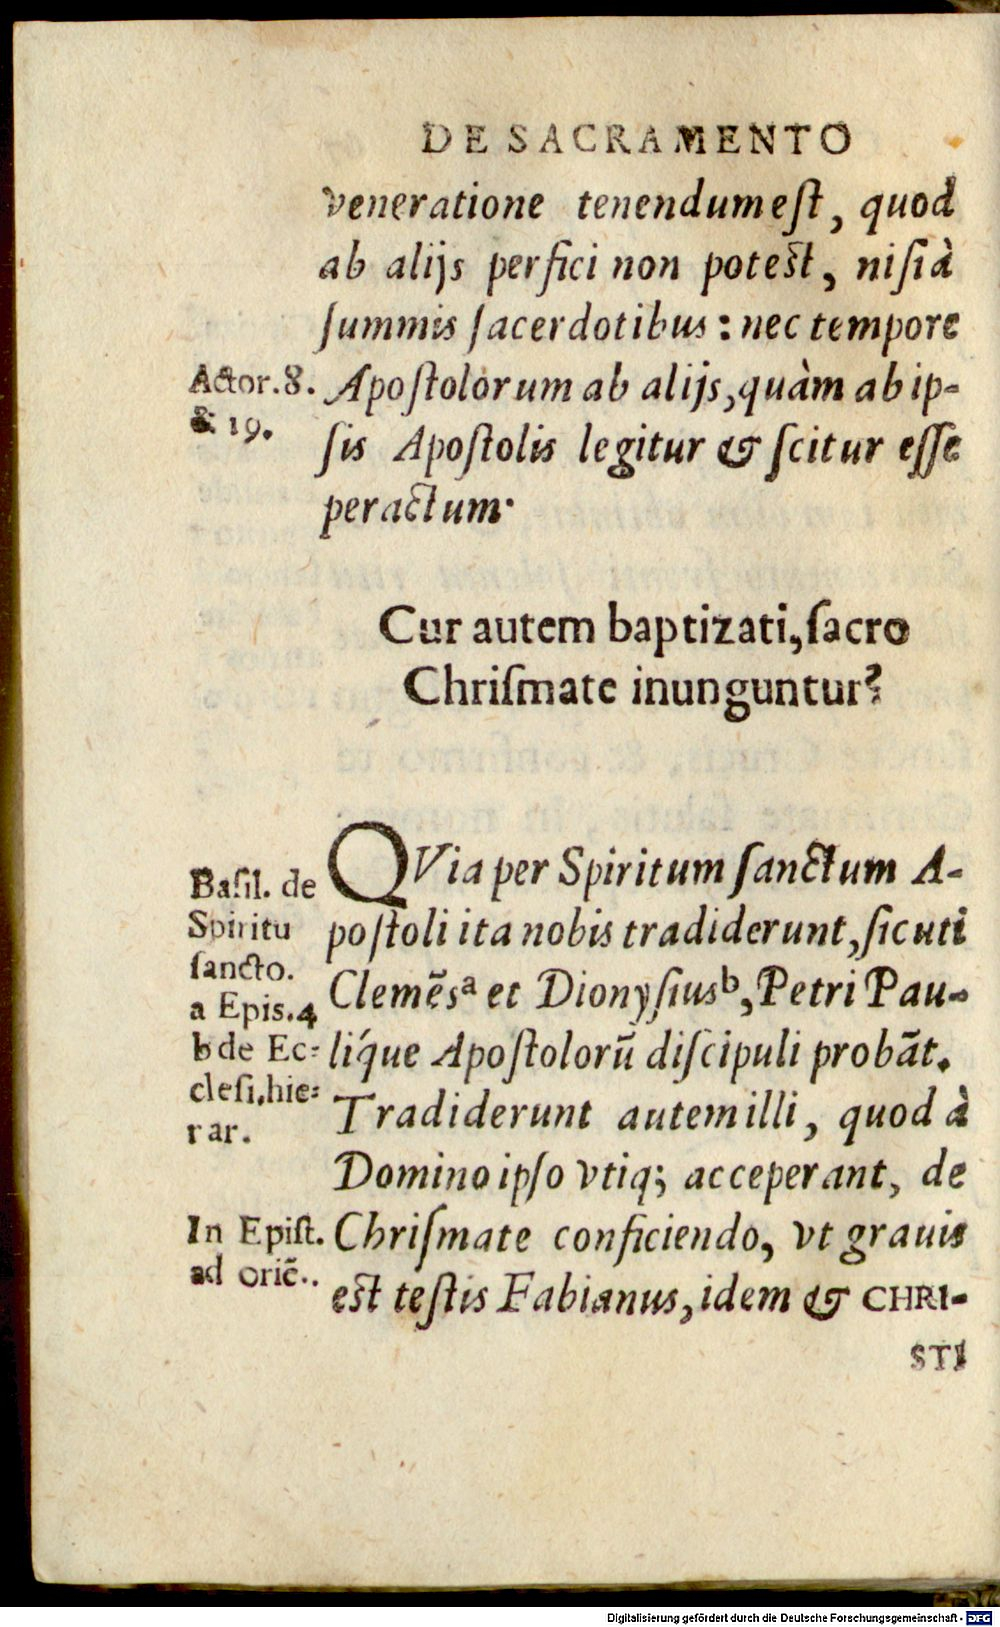 DE SACRAMENTO
veneratione tenendum eſt, quod
ab alijs perfici non poteſt, niſi à
ſummis ſacerdotibus: nec tempore
Actor. 8.
& 19.
Apoſtolorum ab alijs, quàm ab ip-
ſis Apoſtolis legitur & ſcitur eſſe
peractum.
Cur autem baptizati, ſacro
Chriſmate inunguntur?
Baſil. de
Spiritu
ſancto.
a Epis. 4
b de Ec-
cleſi. hie-
rar.
QVia per Spiritum ſanctum A-
poſtoli ita nobis tradiderunt, ſicuti
Clemẽsᵃ et Dionyſiusᵇ, Petri Pau-
liq́ue Apoſtolorũ diſcipuli probãt.
Tradiderunt autem illi, quod à
Domino ipſo vtiq; acceperant, de
In Epiſt.
ad oriẽ..
Chriſmate conficiendo, vt grauis
eſt teſtis Fabianus, idem & CHRI-
STI
Digitalisierung gefördert durch die Deutsche Forschungsgemeinschaft - DFG